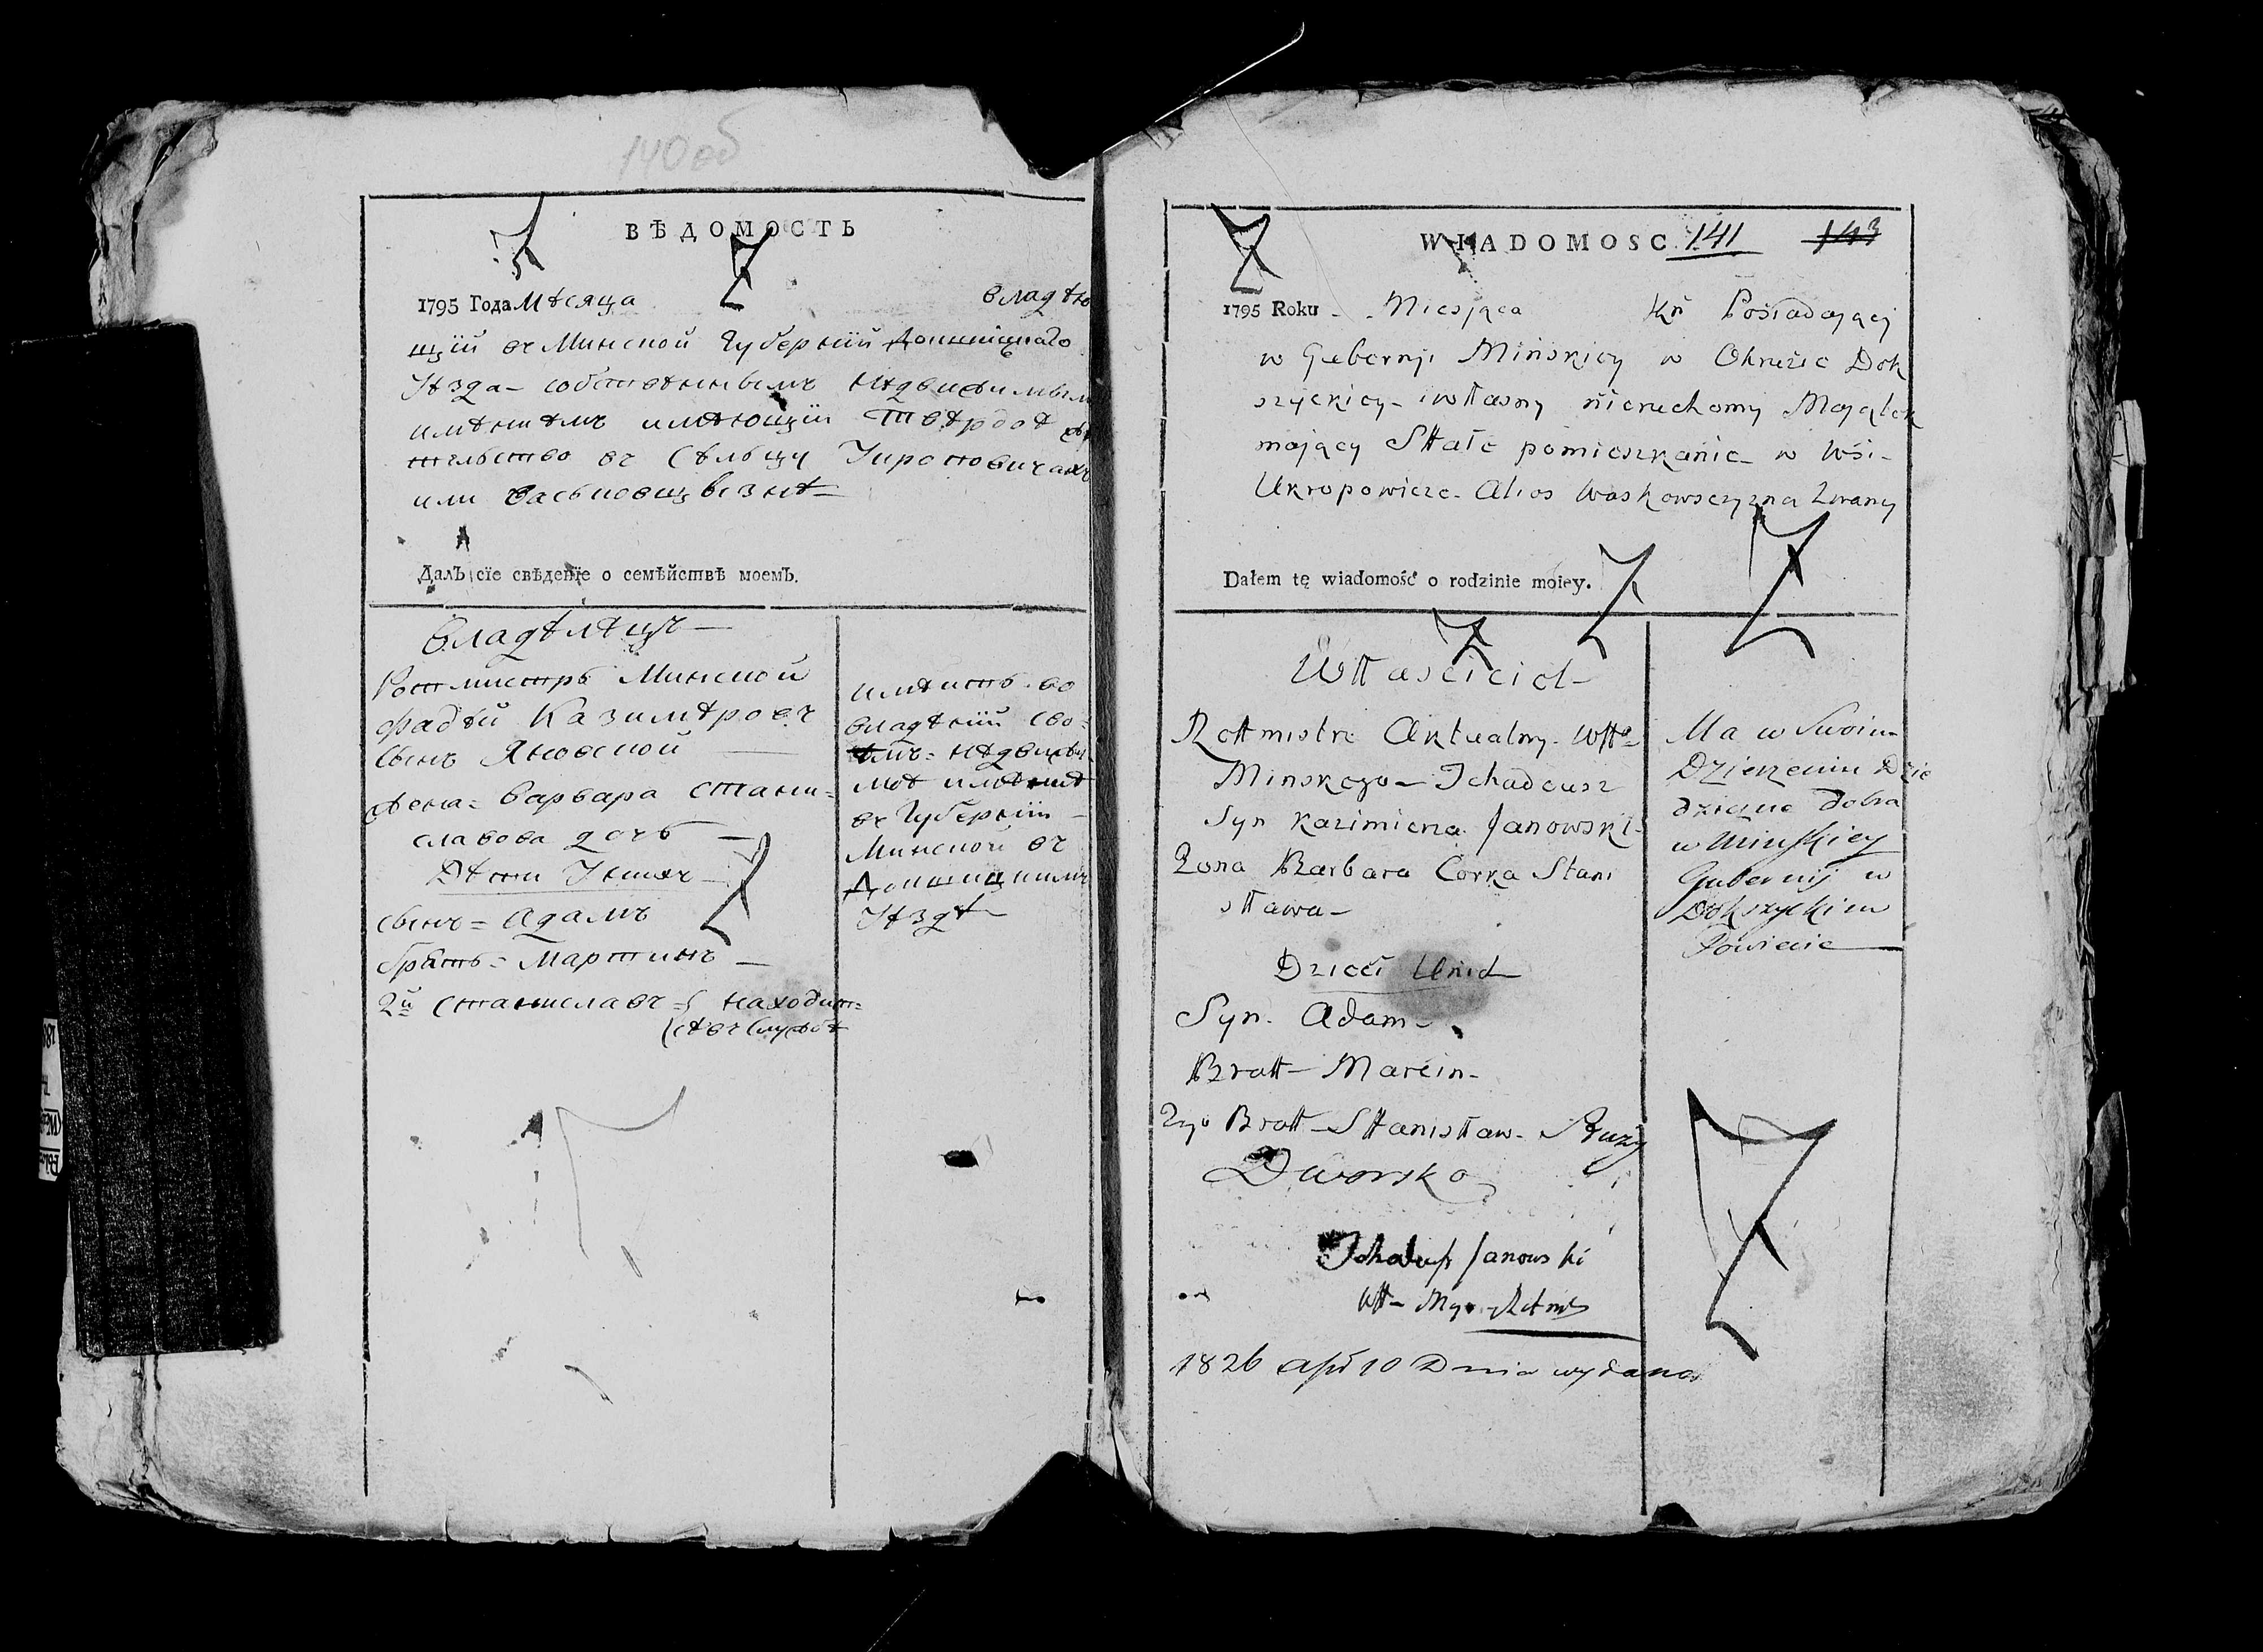 140 об
ВѢДОМОСТЬ
1795 Года Мѣсяца владѣю
щїй въ Минской Губернїй Докшицкаго
Уѣзда собственнымъ недвижимым
имѣнiемъ имѣющїй твердое жи
тельство въ Сельцу Укроповичахъ
или Васьковщизне
Далъ сїе свѣденїе о семѣйствѣ моемъ.
Владѣлецъ
Ротмистръ Минской
Фадѣй Казимѣровъ
Сынъ Яновской
жена = Варвара Стани=
славова дочь
Дѣти У нихъ
сынъ = Адамъ
братъ = Мартинъ
2й Станиславъ = находит=
се въ Службѣ
имѣитъ во
владѣнїй сво=
емъ = недвижи
мое имѣние
въ Губернїи
Минской въ
Докшицкимъ
Уѣздѣ
WIADOMOSC 141 143
1795 Roku Miesjąca Posiadający
w Gubernji Minskiey w Okruźie Dok
szyckiey włtasny nieruchomy Majątek
mający Sttałe pomieszkanie w wśi
Ukropowicze Alios Waskowsczyzna Zwany
Dałem tę wiadomość o rodzinie moiey.
Włtasciciel
Rottmistrz Aktualny Wttº
Minskego Tchadeusz
Syn Kazimierza Janowski
Zona Barbara Corka Stani
sława
Dzieci Unich
Syn Adam
Bratt Marcin
2go Bratt Sttanisław Służy
Dworsko
Tchadeusz Janowski
1826 apr 10 Dnia wydano
Ma w Swoim
Dzierzeniu Dzie
dziczne dobra
w Minskiey
Gubernij w
Dokszyckim
Powiecie